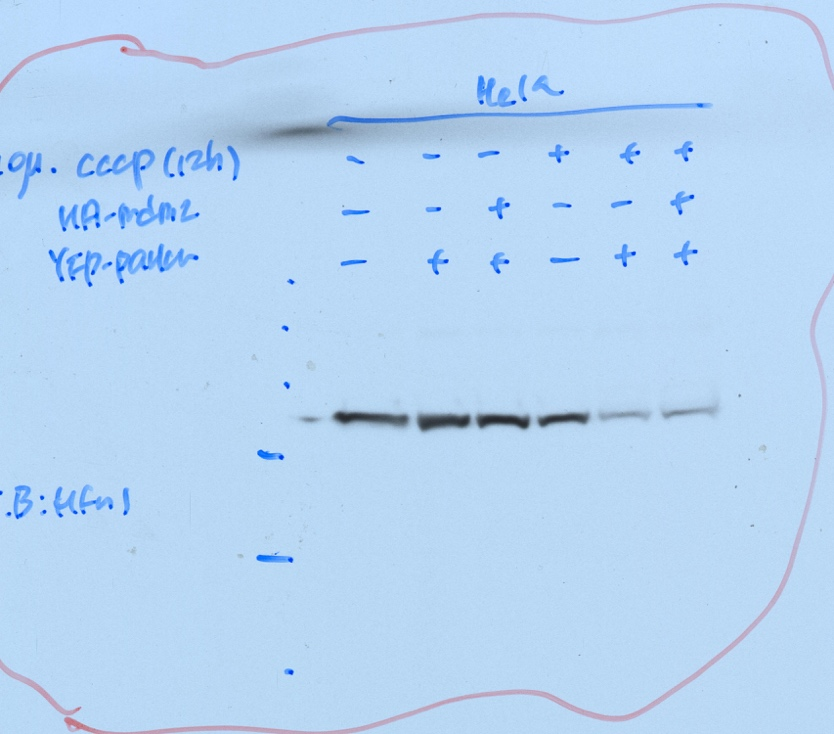 HeLa
cccp (12h) - - - + + +
HA-mdm2 - - + - - +
YFP-parkin - + + - + +
.B: Mfn1